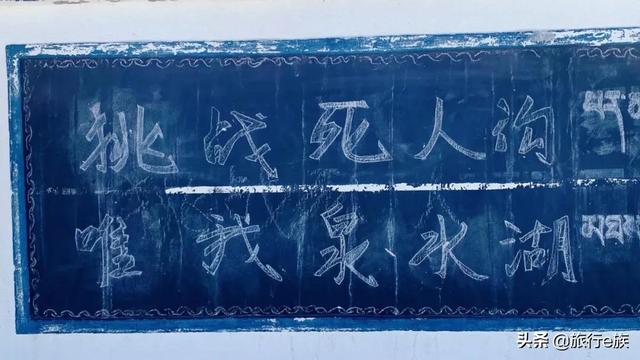 挑战死人沟
唯我泉水湖
头条@旅行e族